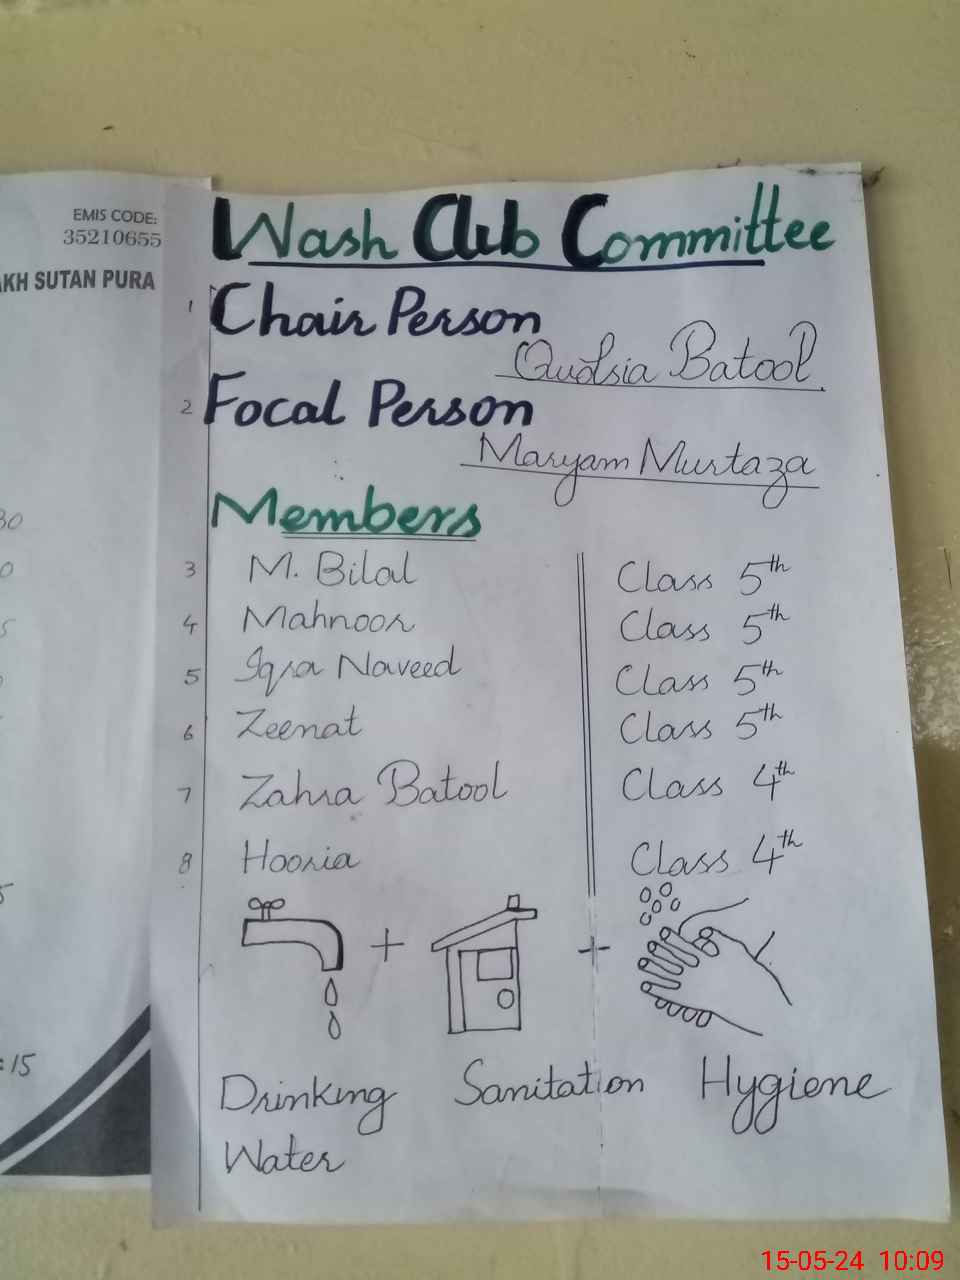 EMIS CODE:
35210655
AKH SUTAN PURA
30
0
5
:15
Wash Club Committee
1 Chair Person
Qudsia Batool.
2 Focal Person
Maryam Murtaza
Members
3 M. Bilal Class 5th
4 Mahnoor Class 5th
5 Iqra Naveed Class 5th
6 Zeenat Class 5th
7 Zahra Batool Class 4th
8 Hooria Class 4th
+ +
Drinking Sanitation Hygiene
Water
15-05-24 10:09